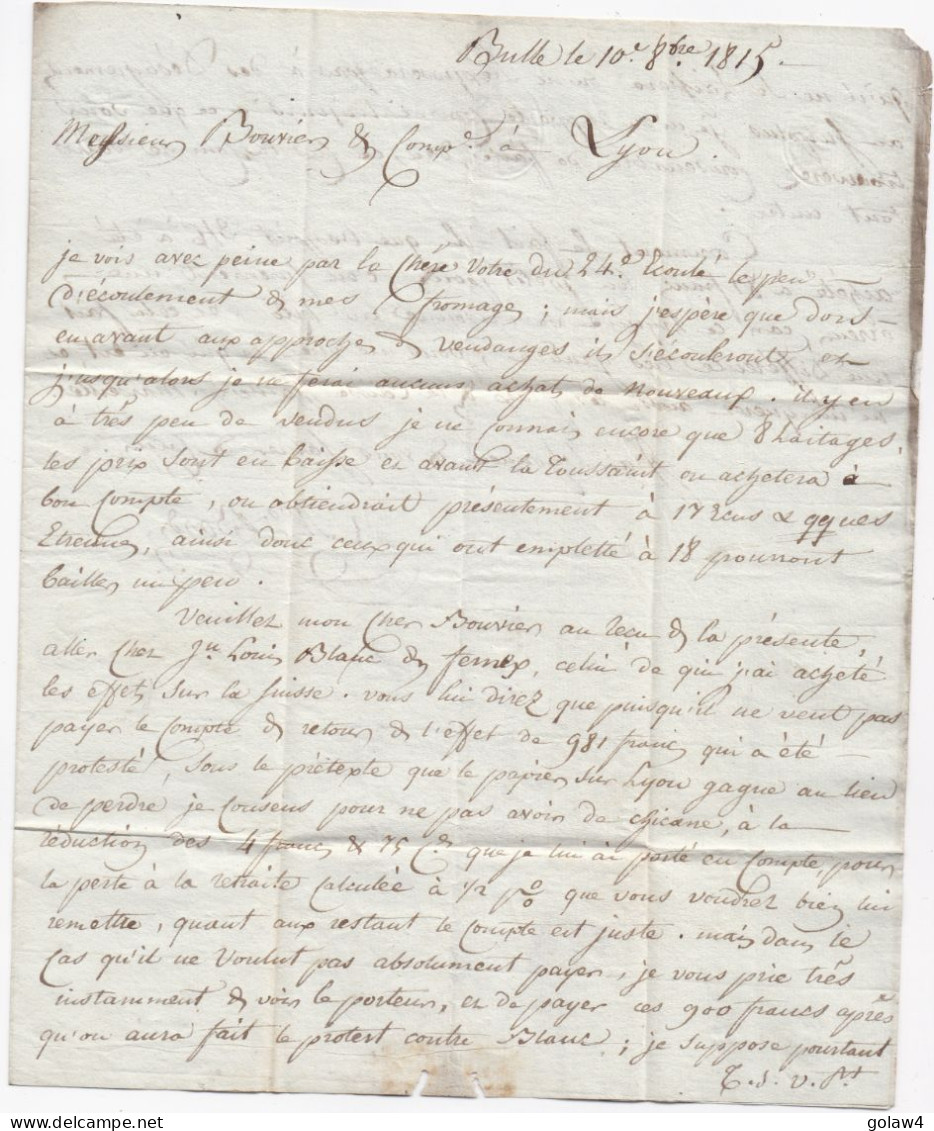 Bulle le 10.e 8bre 1815.
Messieurs Bouvier & Comp.e à Lyon.
je vois avec peine par la chere votre du 24.e Ecoulé le peu
d'écoulement de mes fromages ; mais j'espère que dors
en avant aux approches de vendanges ils s'écouleront et
j'usqu'alors je ne ferai aucuns achat de nouveaux. il y en
à très peu de vendus je ne connois encore que 8 Laitages,
les prix sont en baisse et avant la Toussaint on achetera à
bon compte, on obtiendroit présentement à 17 Ecus & qques
Etrennes, ainsi donc ceux qui ont empletté à 18 pourront
bailler un peu.
Veuillez mon cher Bouvier au recu de la présente,
aller chez Jn Louis Blanc de fernex, celui de qui j'ai acheté
les effets sur la suisse. vous lui direz que puisqu'il ne veut pas
payer le compte de retour de l'effet de 981 francs qui a été
protesté, sous le prétexte que le papier sur Lyon gagne au lieu
de perdre je consens pour ne pas avoir de chicane, à la
réduction des 4 francs & 75 Cs que je lui ai porté en compte, pour
la perte à la retraite calculée à 1/2 p% que vous voudrez bien lui
remettre, quant aux restant le compte est juste. mais dans le
cas qu'il ne voulut pas absolument payer, je vous prie très
instamment de voir le porteur, et de payer ces 900 francs après
qu'on aura fait le protest contre Blanc ; je suppose pourtant
T. s. v. pt
golaw4